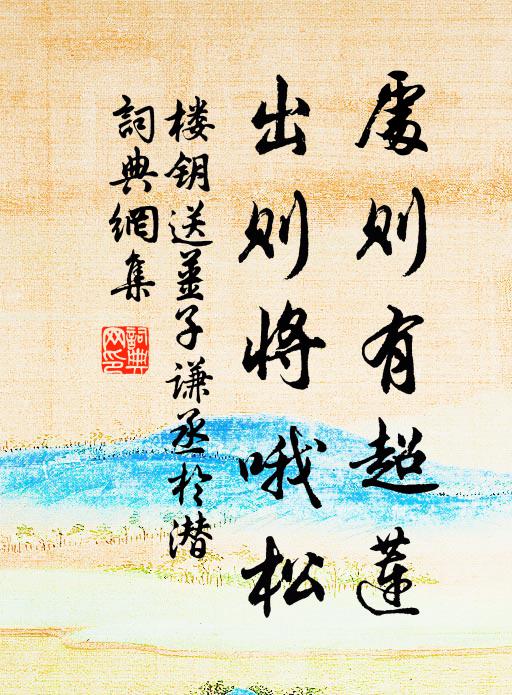 處則有超蓮
出則將哦松
楼钥送薑子谦丞於潜
詞典網集
詞典網印